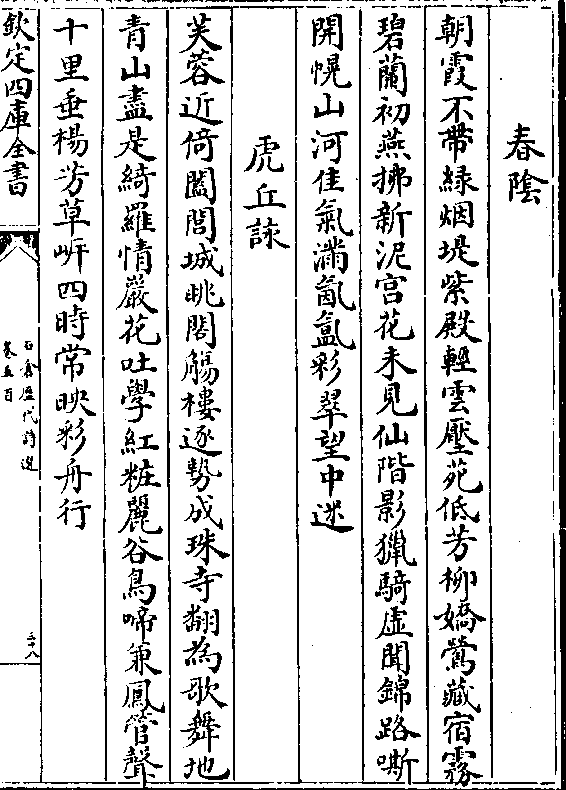 春陰
朝霞不帶緑烟堤紫殿輕雲壓苑低芳柳嬌鶯藏宿霧
碧蘭初燕拂新泥宫花未見仙階影獵騎虚聞錦路嘶
開幌山河佳氣滿氤氲彩翠望中迷
虎丘詠
芙蓉近倚闔閭城眺閣觴樓逐勢成珠寺翻為歌舞地
青山盡是綺羅情巖花吐學紅粧麗谷鳥啼兼鳳管聲
十里垂楊芳草岍四時常映彩舟行
欽定四庫全書
石倉歴代詩選
卷五百
三十八